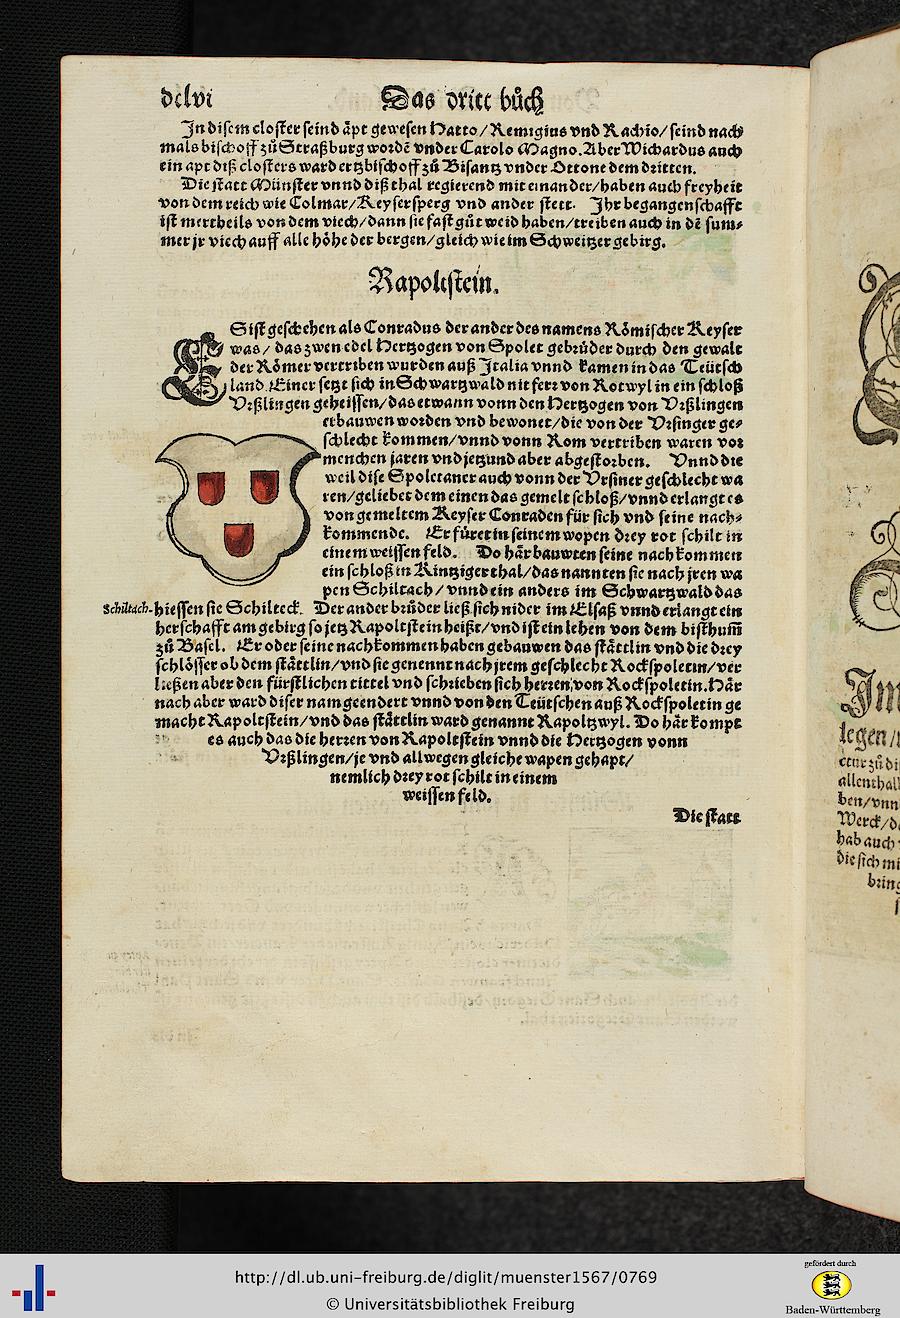 dclvi
Das dritt bůch
In disem closter seind äpt gewesen Hatto/ Remigius vnd Rachio/ seind nach
mals bischoff zů Straßburg wordē vnder Carolo Magno. Aber Wichardus auch
ein apt diß closters ward ertzbischoff zů Bisantz vnder Ottone dem dritten.
Die statt Münster vnnd diß thal regierend mit einander/ haben auch freyheit
von dem reich wie Colmar/ Keysersperg vnd ander stett. Ihr begangenschafft
ist mertheils von dem viech/ dann sie fast gůt weid haben/ treiben auch in dē sum⸗
mer jr viech auff alle höhe der bergen/ gleich wie im Schweitzer gebirg.
Rapoltstein.
ES ist geschehen als Conradus der ander des namens Römischer Keyser
was/ das zwen edel Hertzogen von Spolet gebrůder durch den gewalt
der Römer vertriben wurden auß Italia vnnd kamen in das Teütsch
land. Einer setzt sich in Schwartzwald nit ferr von Rotwyl in ein schloß
Vrßlingen geheissen/ das etwann vonn den Hertzogen von Vrßlingen
erbauwen worden vnd bewonet/ die von der Vrsinger ge⸗
schlecht kommen/ vnnd vonn Rom vertriben waren vor
menchen jaren vnd jetzund aber abgestorben. Vnnd die
weil dise Spoletaner auch vonn der Vrsiner geschlecht wa
ren/ geliebet dem einen das gemelt schloß/ vnnd erlangt es
von gemeltem Keyser Conraden für sich vnd seine nach⸗
kommende. Er füret in seinem wopen drey rot schilt in
einem weissen feld. Do här bauwten seine nachkommen
ein schloß in Kintziger thal/ das nannten sie nach jren wa
pen Schiltach/ vnnd ein anders im Schwartzwald das
Schiltach.
hiessen sie Schilteck. Der ander brůder ließ sich nider im Elsaß vnnd erlangt ein
herschafft am gebirg so jetz Rapoltstein heißt/ vnd ist ein lehen von dem bisthum̄
zů Basel. Er oder seine nachkommen haben gebauwen das stättlin vnd die drey
schlösser ob dem stättlin/ vnd sie genennt nach jrem geschlecht Rockspoletin/ ver
liessen aber den fürstlichen tittel vnd schrieben sich herren von Rockspoletin. Här
nach aber ward diser nam geendert vnnd von den Teütschen auß Rockspoletin ge
macht Rapoltstein/ vnd das stättlin ward genannt Rapoltzwyl. Do här kompt
es auch das die herren von Rapoltstein vnnd die Hertzogen vonn
Vrßlingen/ je vnd allwegen gleiche wapen gehapt/
nemlich drey rot schilt in einem
weissen feld.
Die statt
Im
legen/
allenthal
ben/ vnn
Werck/ d
hab auch
die sich mi
bring
http://dl.ub.uni-freiburg.de/diglit/muenster1567/0769
© Universitätsbibliothek Freiburg
gefördert durch
Baden-Württemberg